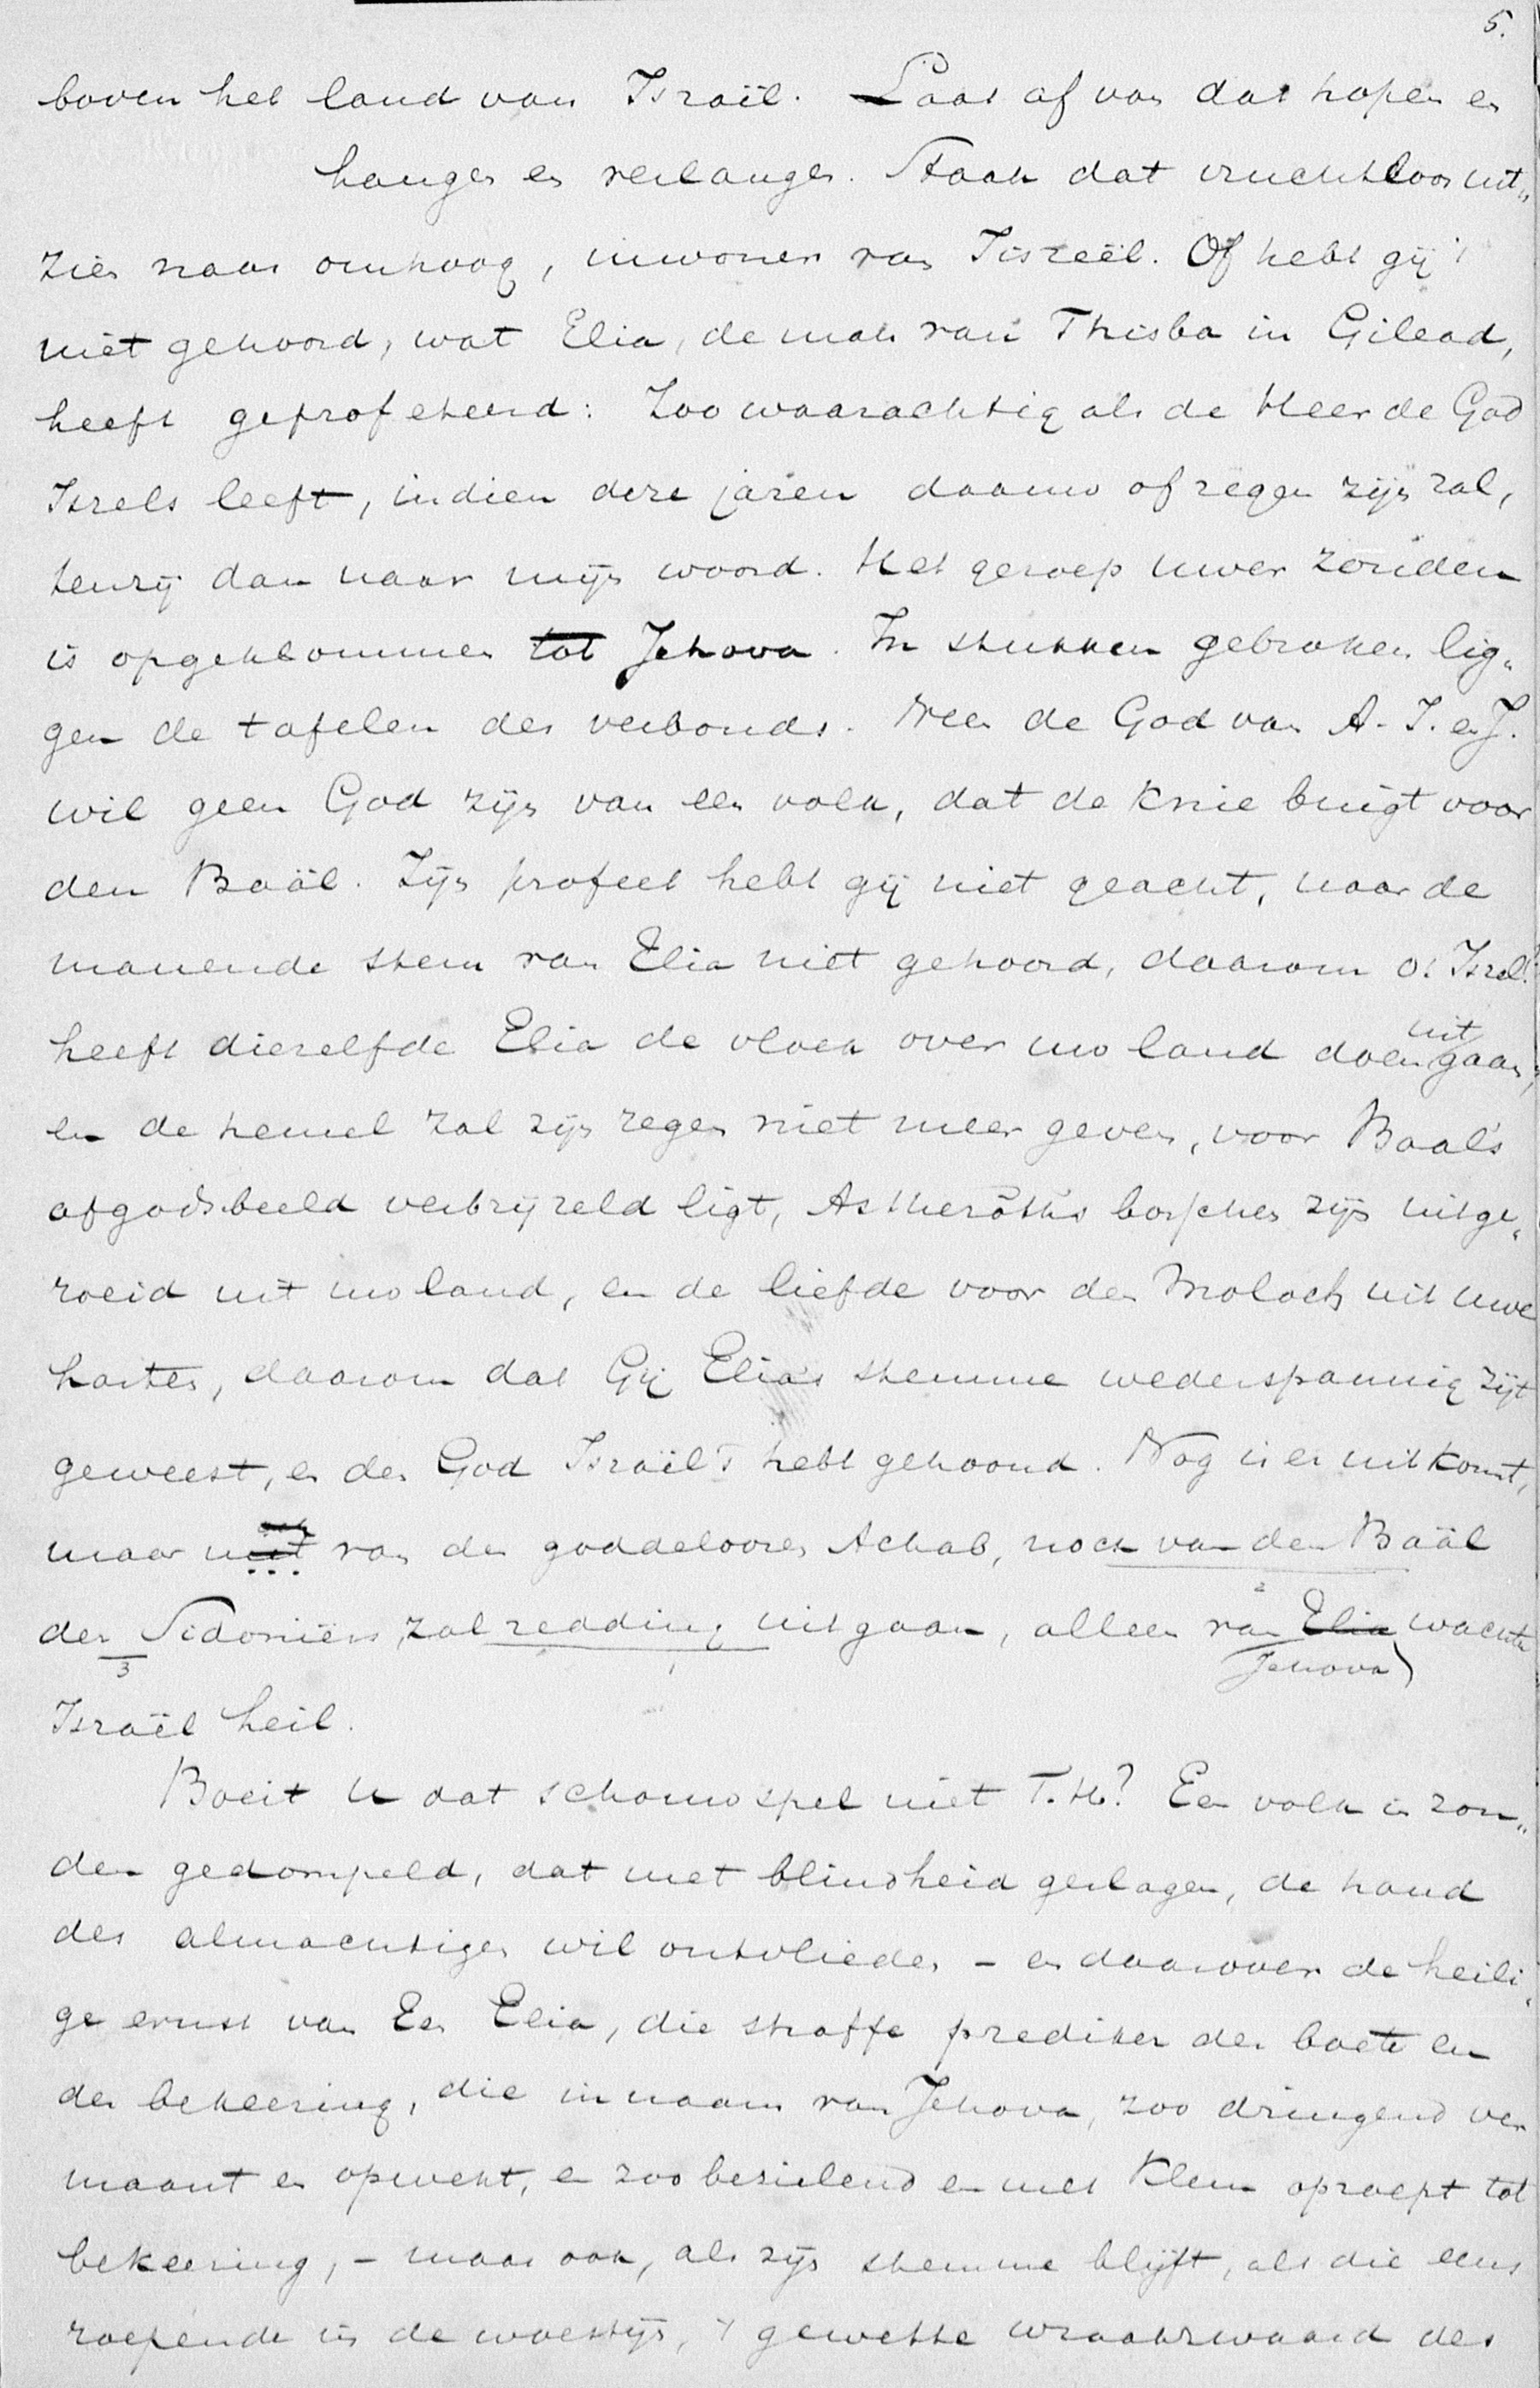 5.
boven het land van Israël. Laat af van dat hopen en
hangen en verlangen. Staak dat vruchtloos uit„
zien naar omhoog, inwoner van Jisreël. Of hebt gij 't
niet gehoord, wat Elia, de man van Thisba in Gilead,
heeft geprofeteerd: Zoo waarachtig als de Heer de God
Isrels leeft, indien deze jaren daauw of regen zijn zal,
tenzij dan naar mijn woord. Het geroep uwer zonden
is opgeklommen tot Jehova. In stukken gebroken lig„
gen de tafelen des verbonds. Neen de God van A. I. en J.
wil geen God zijn van een volk, dat de knie buigt voor
den Baäl. Zijn profeet hebt gij niet geacht, naar de
manende stem van Elia niet gehoord, daarom o! Isrel!
heeft diezelfde Elia de vloek over uw land doen uitgaan,
en de hemel zal zijn regen niet meer geven, voor Baal's
afgodsbeeld verbrijzeld ligt, Astheroths bosschen zijn uitge„
roeid uit uw land, en de liefde voor den Moloch uit uwe
harten, daarom dat Gij Elia's stemme wederspannig zijt
geweest, en den God Israël's hebt gehoond. Nog is er uitkomst,
maar niet van den goddeloozen Achab, noch van den Baäl
der Sidoniërs, zal redding uitgaan, alleen van Elia wachte
3 1 2 Jehova)
Israël heil.
Boeit u dat schouwspel niet T. H.? Een volk in zon„
den gedompeld, dat met blindheid geslagen, de hand
des almachtigen wil ontvlieden - en daarover de heili„
ge ernst van Een Elia, die straffe prediker der boete en
der bekeering, die in naam van Jehova, zoo dringend ver
maant en opwekt, en zoo bezielend en met klem oproept tot
bekeering, - maar ook, als zijn stemme blijft, als die eens
roepende in de woestijn, 't gewette wraakzwaard des